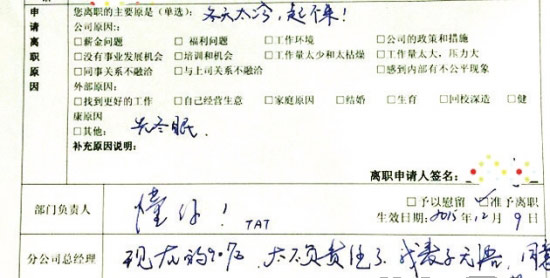 申请离职原因
您离职的主要原是（单选）： 冬天太冷，起不来！
公司原因：
□薪金问题 □福利问题 □工作环境 □公司的政策和措施
□没有事业发展机会 □培训和机会 □工作量太少和太枯燥 □工作量太大，压力大
□同事关系不融洽 □与上司关系不融洽 □感到内部有不公平现象
外部原因：
□找到更好的工作 □自己经营生意 □家庭原因 □结婚 □生育 □回校深造 □健
康原因
□其他： 先冬眠.
补充原因说明：
离职申请人签名：
部门负责人 懂你！ TAT □予以慰留 □准予离职
生效日期：2015年12月9日
分公司总经理 现在的90后，太不负责任了，我表示无语，